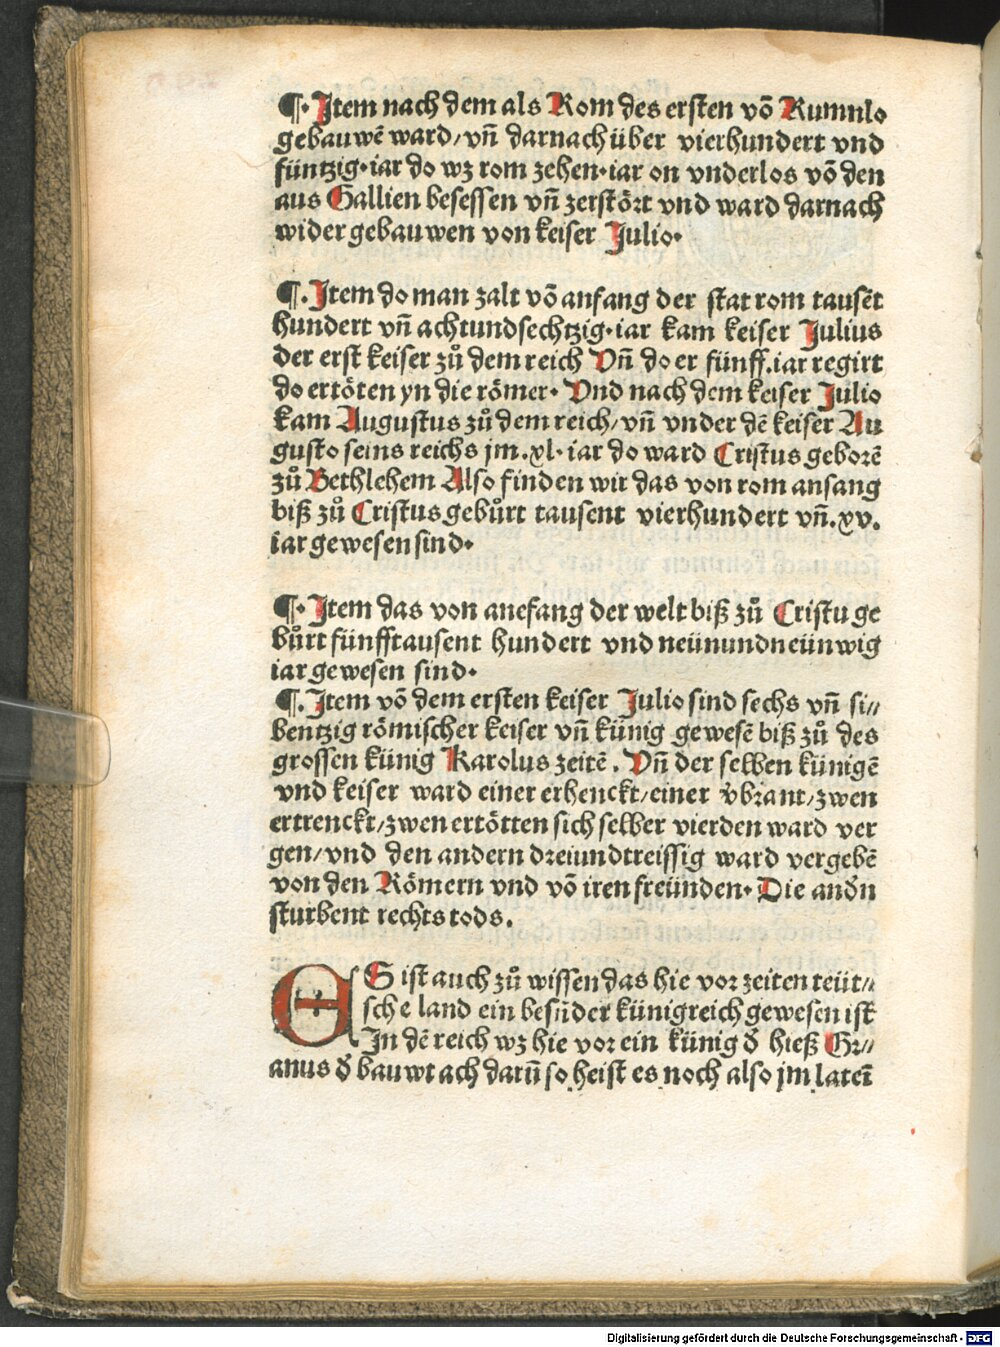 ¶· Item nach dem als Rom des ersten võ Rumnlo
gebauwẽ ward/ vñ darnach über vierhundert vnd
füntzig·iar do wz rom zehen·iar on vnderlos võ den
aus Gallien besessen vñ zerstört vnd ward darnach
wider gebauwen von keiser Julio·
¶· Item do man zalt võ anfang der stat rom tausẽt
hundert vñ achtundsechtzig·iar kam keiser Julius
der erst keiser zů dem reich Vñ do er fünff.iar regirt
do ertöten yn die römer· Vnd nach dem keiser Julio
kam Augustus zů dem reich/ vñ vnder dẽ keiser Au
gusto seins reichs jm.xl·iar do ward Cristus geborẽ
zů Bethlehem Also finden wir das von rom anfang
biß zů Cristus gebůrt tausent vierhundert vñ.xv.
iar gewesen sind·
¶· Item das von anefang der welt biß zů Cristu ge
bůrt fünfftausent hundert vnd neünundneünwig
iar gewesen sind·
¶. Item võ dem ersten keiser Julio sind sechs vñ si//
bentzig römischer keiser vñ künig gewesẽ biß zů des
grossen künig Karolus zeitẽ. Vñ der selben künigẽ
vnd keiser ward einer erhenckt/ einer v̊brant/ zwen
ertrenckt/ zwen ertötten sich selber vierden ward ver
gen/ vnd den andern dreiundtreissig ward vergebẽ
von den Römern vnd võ iren freünden· Die andn̄
sturbent rechts tods.
ES ist auch zů wissen das hie vor zeiten teüt//
sche land ein besũder künigreich gewesen ist
In dẽ reich wz hie vor ein künig ď hieß Gr//
anus ď bauwt ach darũ so heist es noch also jm lateĩ
Digitalisierung gefördert durch die Deutsche Forschungsgemeinschaft - DFG